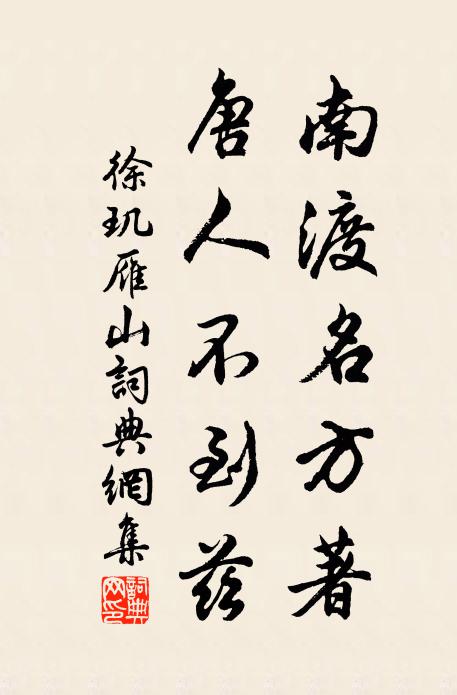 南渡名方著
唐人不到茲
徐玑雁山詞典網集
詞典網印